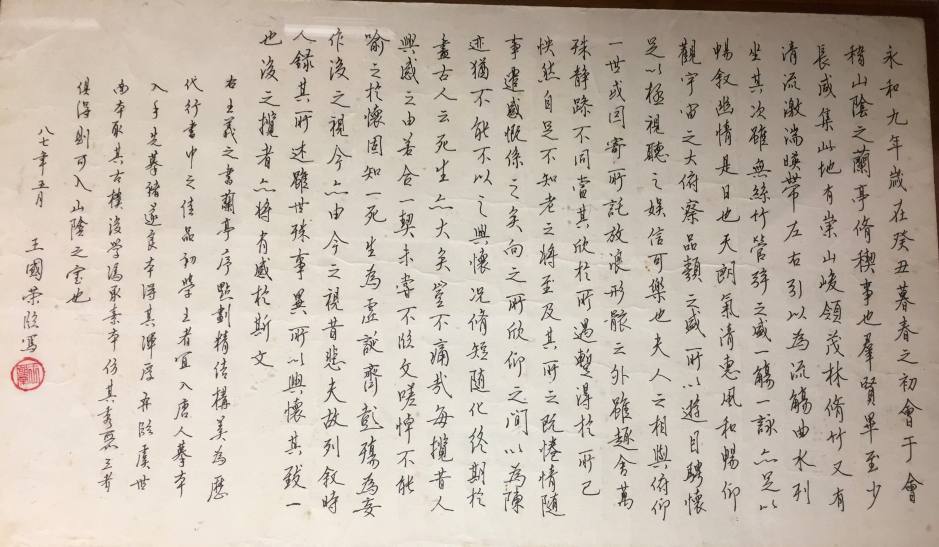 永和九年歲在癸丑暮春之初會于會
稽山陰之蘭亭脩稧事也羣賢畢至少
長咸集此地有崇山峻領茂林脩竹又有
清流激湍暎帶左右引以為流觴曲水列
坐其次雖無絲竹管弦之盛一觴一詠亦足以
暢叙幽情是日也天朗氣清惠風和暢仰
觀宇宙之大俯察品類之盛所以遊目騁懷
足以極視聽之娛信可樂也夫人之相與俯仰
一世或因寄所託放浪形骸之外雖趣舍萬
殊靜躁不同當其欣於所遇暫得於所己
怏然自足不知老之將至及其所之既惓情隨
事遷感慨係之矣向之所欣仰之间以為陳
迹猶不能不以之興懷况脩短隨化終期於
盡古人云死生亦大矣豈不痛哉每攬昔人
興感之由若合一契未嘗不臨文嗟悼不能
喻之於懷固知一死生為虛誕齊彭殤為妄
作後之視今亦由今之視昔悲夫故列叙時
人錄其所述雖世殊事異所以興懷其致一
也後之攬者亦將有感於斯文
右王羲之書蘭亭序點劃精結構美為歷
代行書中之佳品初學王者宜入唐人摹本
入手先摹褚遂良本得其渾厚再臨虞世
南本取其古樸後學馮承素本仿其秀麗三者
俱得則可入山陰之室也
八七年五月 王國榮臨寫